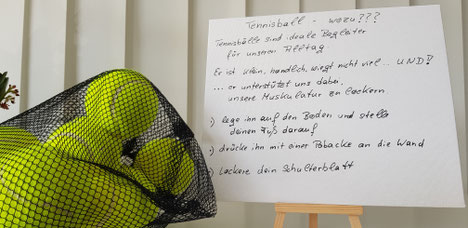 Tennisball - wozu???
Tennisbälle sind ideale Begleiter
für unseren Alltag.
Er ist klein, handlich, wiegt nicht viel... UND?
... er unterstützt uns dabei,
unsere Muskulatur zu lockern
.) lege ihn auf den Boden und stelle
deinen Fuß darauf
.) drücke ihn mit einer Pobacke an die Wand
.) lockere dein Schulterblatt